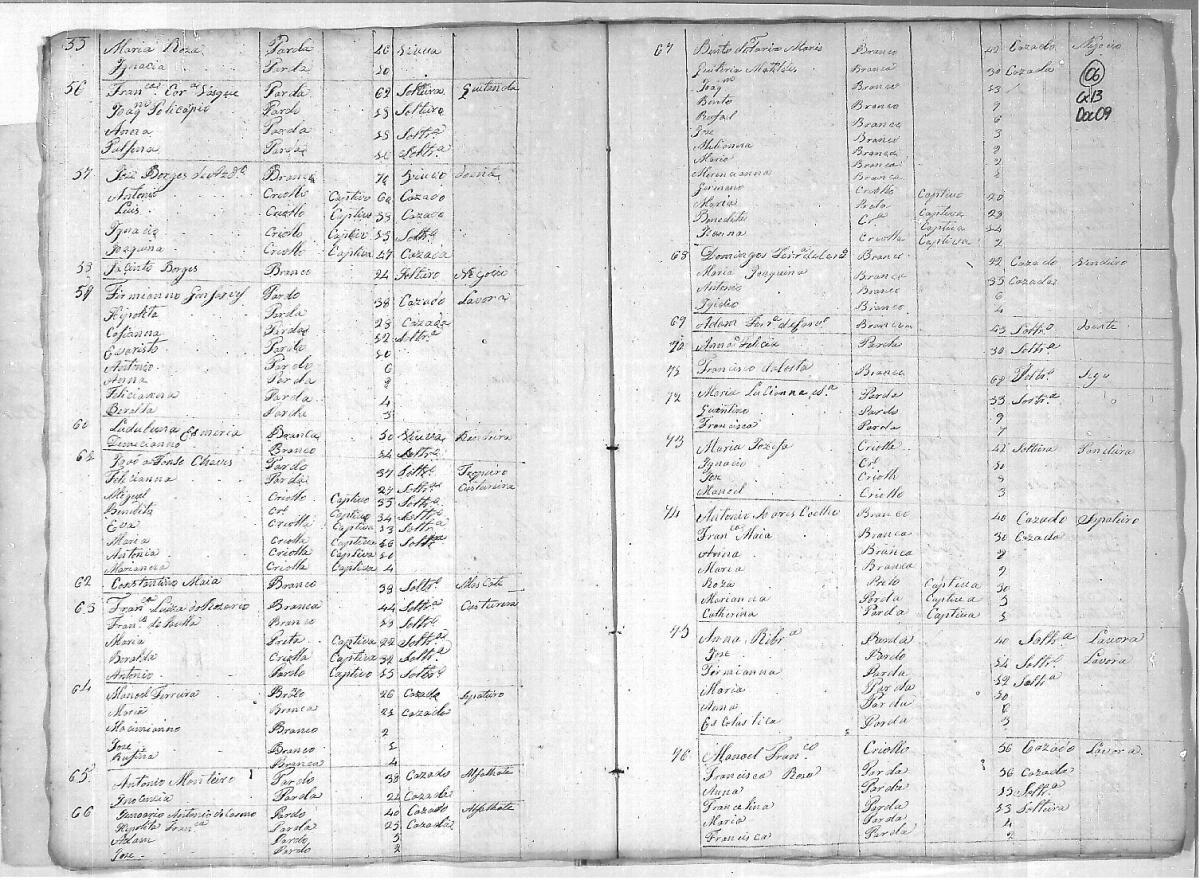 55 Maria Roza Parda 46 Viuva
Ignacia Parda 10
56 Fran.ca Cor.a Parda 62 Solteira Quitanda
Joaq.m Policapio Pardo 18 Solteiro
Anna Parda 18 Solt.ra
Parda Solt.ra
57 Joze Borges de Branco 70 Viuvo
Antonio Criollo Captivo 60 Cazado
Luis Criollo Captivo 38 Cazado
Ignacia Criolla Captiva 15 Solt.ra
Joaquina Criolla Captiva 47 Cazada
58 Jacinto Borges Branco 24 Solteiro Negocio
59 Firmianno Pardo 38 Cazado Lavora
Hipolita Parda 28 Cazada
Cosianna Parda 12 Solt.ra
Evaristo Pardo 10
Antonio Pardo 6
Anna Parda 8
Felicianna Parda 4
Beralda Parda 3
60 Esmeria Branca 50 Viuva
Branco 14 Solt.ro
61 Chaves Pardo 37 Solt.ro
Felicianna Parda 27 Solt.ra Custureira
Miguel Criollo Captivo 35 Solt.ro
Bendita Cr.a Captiva 34 Solt.ra
Eva Criolla Captiva 13 Solt.ra
Maria Criolla Captiva 16 Solt.ra
Antonia Criolla Captiva 10
Marianna Criolla Captiva 4
62 Constantino Maia Branco 38 Solt.ro
63 Fran.ca Luiza do Rozario Branca 44 Solt.ra Custureira
Fran.co de Paula Branco 19 Solt.ro
Maria Preta Captiva 22 Solt.ra
Beralda Criolla Captiva 32 Solt.ra
Antonio Pardo Captivo 15 Solt.ro
64 Manoel Ferreira Branco 26 Cazado Sapateiro
Maria Branca 21 Cazada
Maximianno Branco 2
Joze Branco 1
Rufina Branca 4
65 Antonio Monteiro Pardo 38 Cazado Alfaihate
Inocencia Parda 24 Cazada
66 Januario Antonio Pardo 40 Cazado Alfaihate
Hipolita Fran.ca Parda 25 Cazada
Adam Pardo 5
Joze Pardo 2
67 Bento de Faria Maris Branco 42 Cazado Negocio
Quiteria Matildes Branca 30 Cazada
Joaq.m Branco 13
Bento Branco 9
Rafael Branco 6
Joze Branco 3
Branca 8
Maria Branca 2
Branca 1
Germano Criollo Captivo 20
Maria Preta Captiva 28
Benedita Cr.a Captiva 14
Joanna Criolla Captiva 2
68 Domingos Branco 42 Cazado Vendeiro
Maria Joaquina Branca 35 Cazada
Antonio Branco 6
Igidio Branco 4
69 Adam Branco 43 Solt.ro
70 Anna Felicia Parda 30 Solt.ra
71 Francisco da Costa Branco 68 Solt.ro
72 Maria Lucianna Parda 33 Solt.ra
Quintino Pardo 9
Francisca Parda 7
73 Maria Jozefa Criolla 42 Solteira
Ignacio Cr.o 10
Joze Criollo 8
Manoel Criollo 3
74 Antonio Soares Coelho Branco 40 Cazado Sapateiro
Fran.ca Maia Branca 30 Cazada
Anna Branca 8
Maria Branca 2
Roza Preto Captiva 30
Marianna Parda Captiva 3
Catherina Parda Captiva 1
75 Anna Ribr.a Parda 40 Solt.ra Lavora
Joze Pardo 24 Solt.ro Lavora
Fermianna Parda 12 Solt.ra
Maria Parda 10
Anna Parda 6
Escolastica Parda 3
76 Manoel Fran.co Criollo 56 Cazado Lavora
Francisca Roza Parda 36 Cazada
Anna Parda 15 Solt.ra
Francelina Parda 13 Solteira
Maria Parda 4
Francisca Parda 2
06
Cx13
Doc09